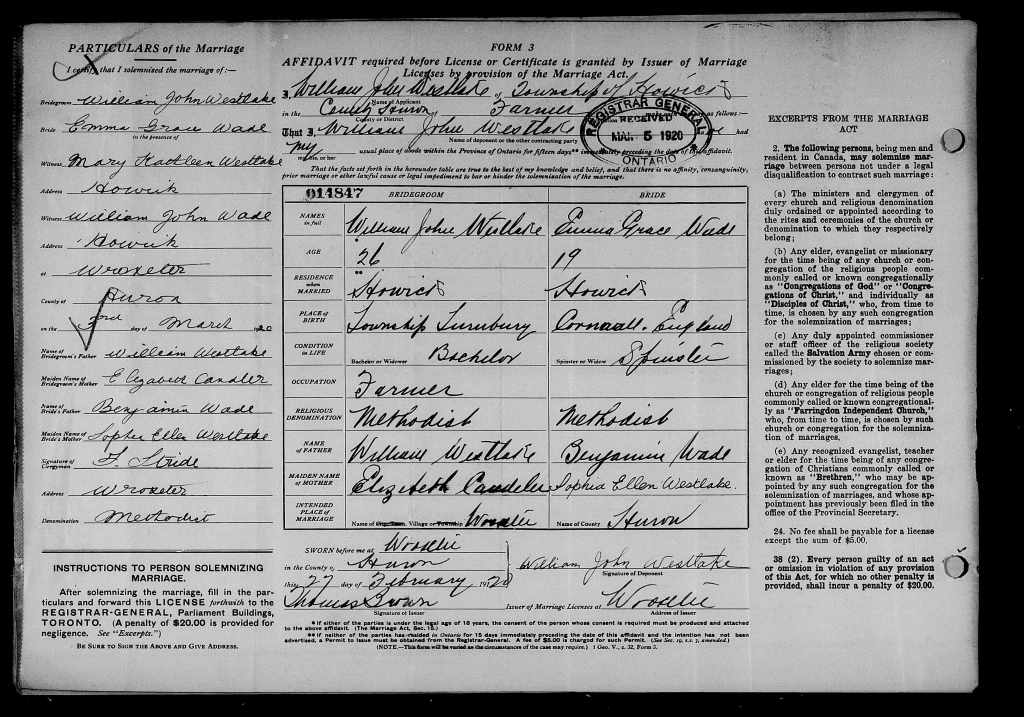 PARTICULARS of the Marriage
I certify that I solemnized the marriage of:—
Bridegroom William John Westlake
Bride Emma Grace Wade
in the presence of
Witness Mary Kathleen Westlake
Address Howick
Witness William John Wade
Address Howick
at Wroxeter
County of Huron
on the 3rd day of March 1920
Name of Bridegroom's Father William Westlake
Maiden Name of Bridegroom's Mother Elizabeth Candler
Name of Bride's Father Benjamin Wade
Maiden Name of Bride's Mother Sophia Ellen Westlake
Signature of Clergyman F. Stride
Address Wroxeter
Denomination Methodist
INSTRUCTIONS TO PERSON SOLEMNIZING
MARRIAGE.
After solemnizing the marriage, fill in the par-
ticulars and forward this LICENSE forthwith to the
REGISTRAR-GENERAL, Parliament Buildings,
TORONTO. (A penalty of $20.00 is provided for
negligence. See "Excerpts.")
BE SURE TO SIGN THE ABOVE AND GIVE ADDRESS.
FORM 3
AFFIDAVIT required before License or Certificate is granted by Issuer of Marriage
Licenses by provision of the Marriage Act.
I, William John Westlake of Township of Howick
Name of Applicant
in the County Huron Farmer as follows:—
County or District
That I, William John Westlake had
Name of deponent or the other contracting party
my usual place of abode within the Province of Ontario for fifteen days** immediately preceding the date of this affidavit.
his, or her
That the facts set forth in the hereunder table are true to the best of my knowledge and belief, and that there is no affinity, consanguinity,
prior marriage or other lawful cause or legal impediment to bar or hinder the solemnization of the marriage.
REGISTRAR GENERAL
RECEIVED
MAR. 5 1920
ONTARIO
014847 BRIDEGROOM BRIDE
NAMES in full William John Westlake Emma Grace Wade
AGE 26 19
RESIDENCE when MARRIED Howick Howick
PLACE OF BIRTH Township Turnbury Cornwall. England
CONDITION IN LIFE Bachelor or Widower Bachelor Spinster or Widow Spinster
OCCUPATION Farmer
RELIGIOUS DENOMINATION Methodist Methodist
NAME OF FATHER William Westlake Benjamin Wade
MAIDEN NAME OF MOTHER Elizebeth Candeler Sophia Ellen Westlake.
INTENDED PLACE OF MARRIAGE Name of City, Town, Village or Township Wroxeter Name of County Huron
SWORN before me at Wroxeter
in the County of Huron
this 27 day of February 1920
William John Westlake
Signature of Deponent
Thomas Brown Issuer of Marriage Licenses at Wroxeter
Signature of Issuer Address of Issuer
* If either of the parties is under the legal age of 18 years, the consent of the person whose consent is required must be produced and attached
to the above affidavit. (The Marriage Act, Sec. 15.)
** If neither of the parties has resided in Ontario for 15 days immediately preceding the date of this affidavit and the intention has not been
advertised, a Permit to issue must be obtained from the Registrar-General. A fee of $5.00 is charged for such Permit. (See Sec. 19, s.s. 7, amended.)
(NOTE.—This form will be varied as the circumstances of the case may require.) 1 Geo. V., c. 32, Form 3.
EXCERPTS FROM THE MARRIAGE
ACT
2. The following persons, being men and
resident in Canada, may solemnize mar-
riage between persons not under a legal
disqualification to contract such marriage:
(a) The ministers and clergymen of
every church and religious denomination
duly ordained or appointed according to
the rites and ceremonies of the church or
denomination to which they respectively
belong;
(b) Any elder, evangelist or missionary
for the time being of any church or con-
gregation of the religious people com-
monly called or known congregationally
as "Congregations of God" or "Congre-
gations of Christ," and individually as
"Disciples of Christ," who, from time to
time, is chosen by any such congregation
for the solemnization of marriages;
(c) Any duly appointed commissioner
or staff officer of the religious society
called the Salvation Army chosen or com-
missioned by the society to solemnize mar-
riages;
(d) Any elder for the time being of the
church or congregation of religious people
commonly called or known congregational-
ly as "Farringdon Independent Church,"
who, from time to time, is chosen by such
church or congregation for the solemniza-
tion of marriages.
(e) Any recognized evangelist, teacher
or elder for the time being of any congre-
gation of Christians commonly called or
known as "Brethren," who may be ap-
pointed by any such congregation for the
solemnization of marriages, and whose ap-
pointment has previously been filed in the
office of the Provincial Secretary.
24. No fee shall be payable for a license
except the sum of $5.00.
38 (2). Every person guilty of an act
or omission in violation of any provision
of this Act, for which no other penalty is
provided, shall incur a penalty of $20.00.